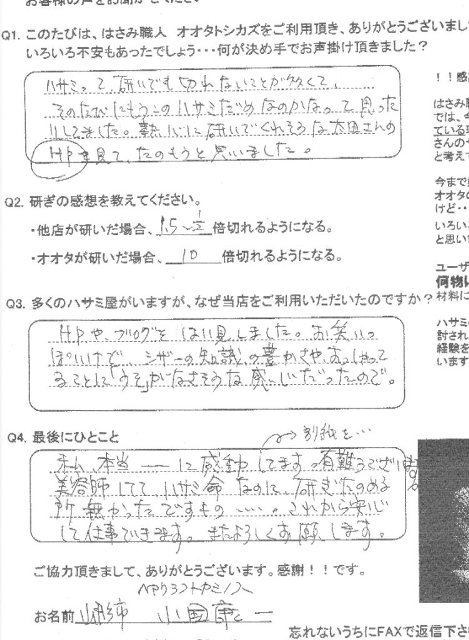 お客様の声をお聞かせください
Q1. このたびは、はさみ職人 オオタトシカズをご利用頂き、ありがとうございまし
いろいろ不安もあったでしょう・・・何が決め手でお声掛け頂きました?
ハサミって、研いでも切れないことが多くて、
そのたびにもうこのハサミだめなのかなって思った
りしてました。熱心に研いでくれそうな太田さんの
HPを見て、たのもうと思いました。
Q2. 研ぎの感想を教えてください。
・他店が研いだ場合、1.5~2倍切れるようになる。
・オオタが研いだ場合、10倍切れるようになる。
Q3. 多くのハサミ屋がいますが、なぜ当店をご利用いただいたのですか?
HPや、ブログをはい見しました。お笑いっ
ぽいけで、シザーの知識の豊かさや、おっしゃって
ることに「うそ」がなさそうな感じだったので。
Q4. 最後にひとこと
→別紙を…
私、本当ーーに感動してます。有難うございます。
美容師してて ハサミ命なのに、研ぎたのめる
所無かったですもの……。これから安心
して仕事できます。またよろしくお願いします。
ご協力頂きまして、ありがとうございます。感謝!!です。
お名前 小田康一
忘れないうちにFAXで返信下さ
!!感
はさみ
では、今
ている
さんの
と考え
今まで
オオタの
けど・・
いろい
と思い
ユーザ
何物に
材料に
ハサミ
討され
経験を
います